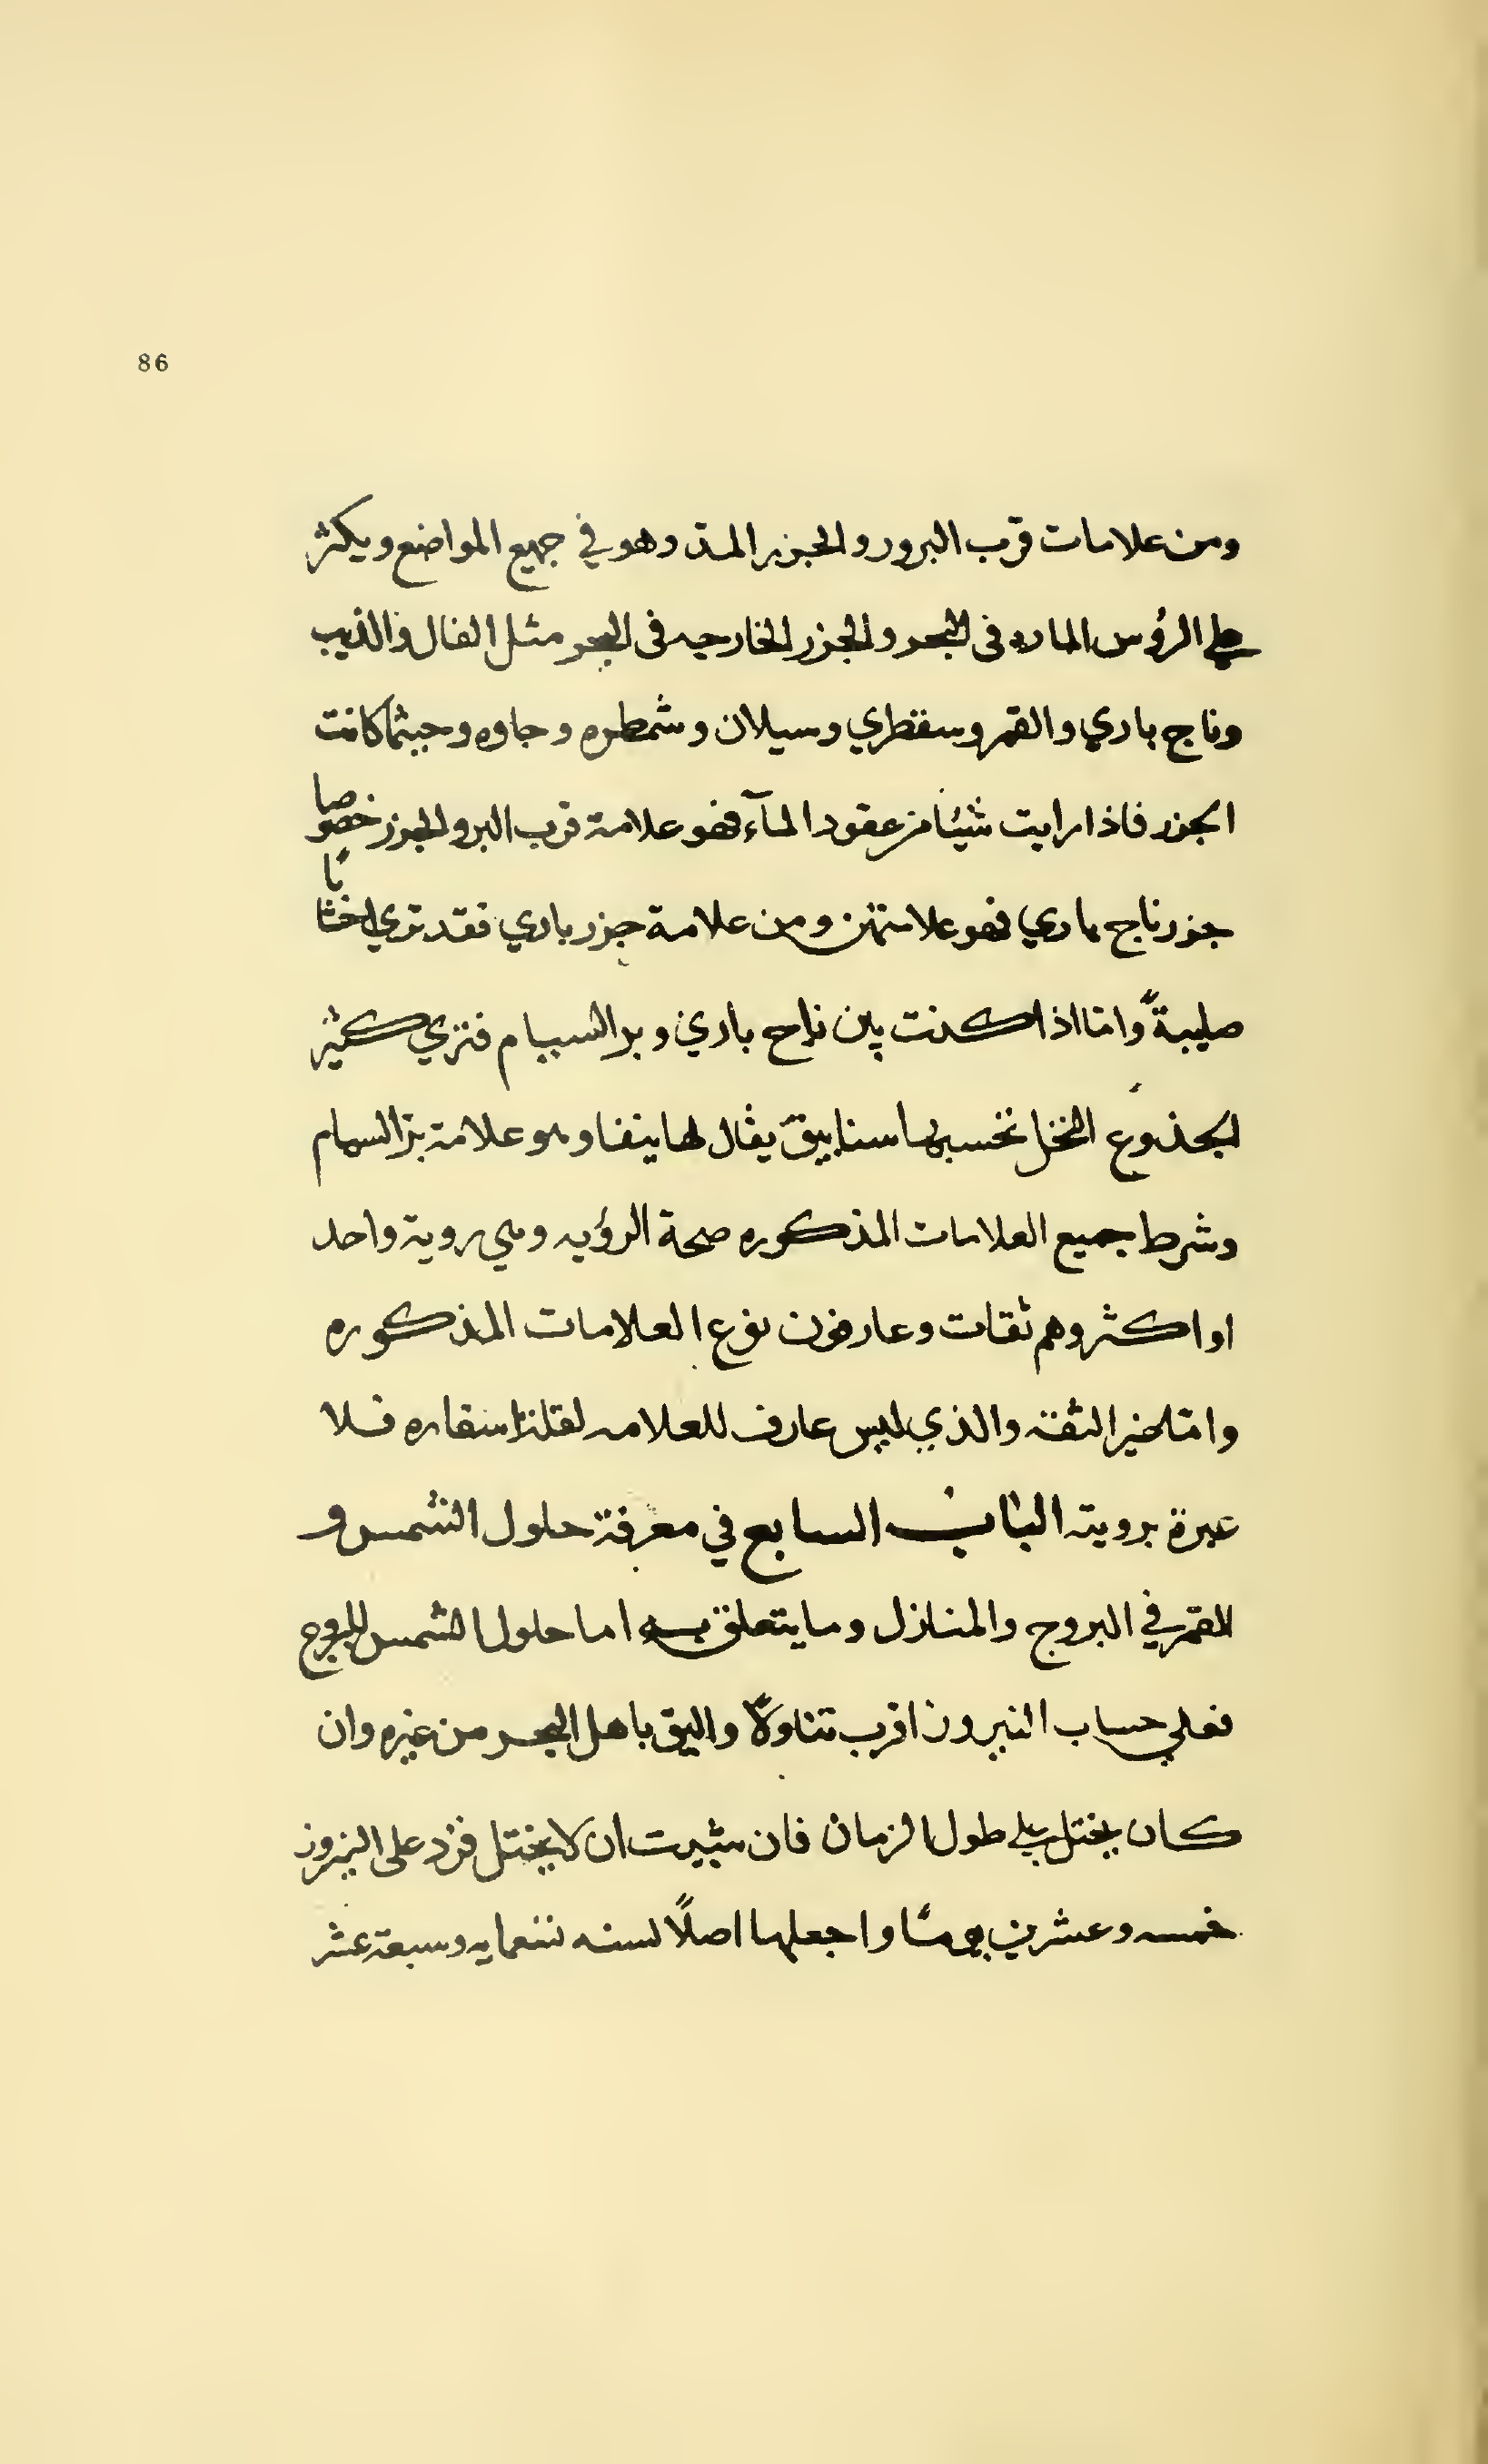 86
ومن علامات قرب البرور والجزير المدّ وهو في جميع المواضع ويكثر
على الرؤس الماره في البحر والجزر الخارجيه في البحر مثل الفال والذيب
وناج باري والقمر وسقطري وسيلان وشمطره وجاوه وحيثما كانت
الجزر فاذا رايت شيئا من عقود المآء فهو علامة قرب البر والجزر خصوصا
جزر ناج باري فهو علامتهن ومن علامة جزر باري فقد تري اخشابًا
صليبةً وامّا اذا كنت بين ناج باري وبر السيام فتري كثير
الجذوع النخل تحسبها سنابيق يقال لها ينفا وهو علامة بر السيام
وشرط جميع العلامات المذكوره صحة الرؤيه وهي روية واحد
او اكثر وهم ثقات وعارفون نوع العلامات المذكوره
وامّا خير الثقه والذي ليس عارف للعلامه لقلة اسفاره فلا
عبرة برويته الباب السابع في معرفة حلول الشمس و
القمر في البروج والمنازل وما يتعلق به اما حلول الشمس للبروج
فعلي حساب النيروز اقرب تناولاً واليق باهل البحر من غيره وان
كان يختل علي طول الزمان فان شيت ان لا يختل فزد على النيروز
خمسه وعشرين يومًا واجعلها اصلًا لسنه تسعمايه وسبعة عشر